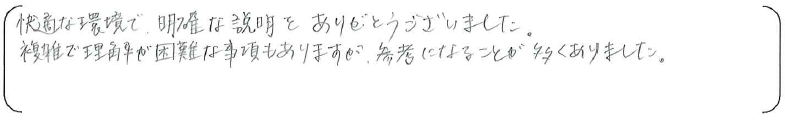 快適な環境で、明確な説明をありがとうございました。
複雑で理解が困難な事項もありますが、参考になることが多くありました。